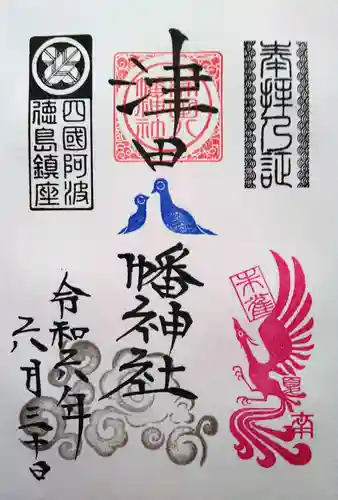 奉拝之証
津田
八幡神社
朱雀
夏
南
四國阿波
徳島鎮座
令和六年
六月三十日